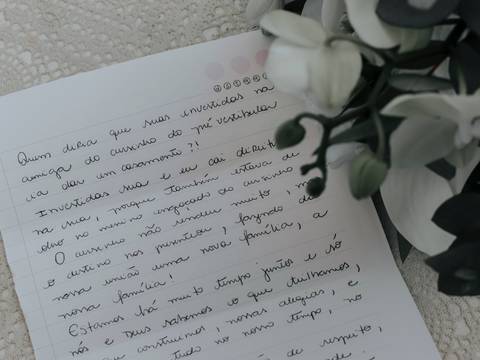 Quem diria que suas investidas na
amiga do cursinho do pré vestibular
ia dar um casamento?!
Investidas sua e eu caí direiti
na sua, porque também estava de
olho no menino engraçado do cursinho
O cursinho não rendeu muito, m
o destino nos presenteou, fazendo da
nossa união uma nova família, a
nossa família!
Estamos há muito tempo juntos e só
nós e Deus sabemos o que trilhamos,
construímos, nossas alegrias, e
tudo no nosso tempo, no
de respeito,